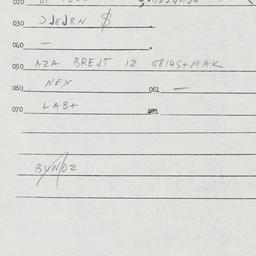 030 DJEJRN $
040 —
050 AZA BREJT IZ G814S+MAK
060 NEX 061 —
070 LAB+ 071
BYNDZ